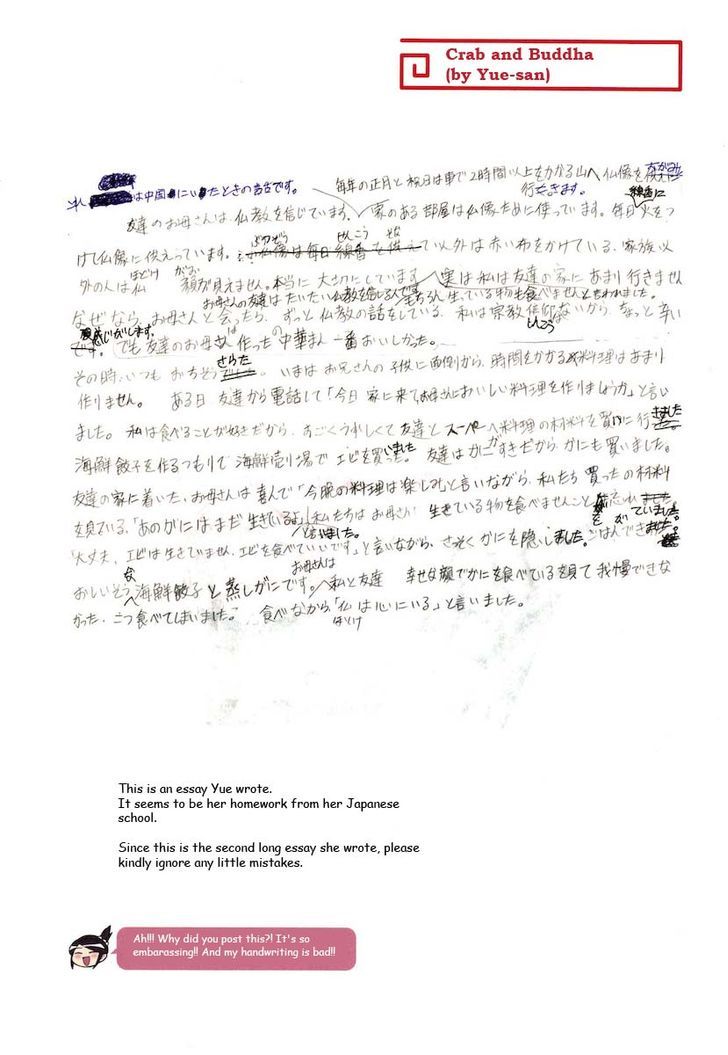 Crab and Buddha
(by Yue-san)
は中国にいたときの話です。
毎年の正月と祝日は車で2時間以上をかかる山へ仏像を
行きます。
線香に
友達のお母さんは、仏教を信じています、家のある部屋は仏像ために使っています。毎日火をつ
けて仏像に供えっています。仏像は毎日線香を供えて以外は赤い布をかけている、家族以
外の人は仏 顔が見えません。本当に大切にしています 実は私は友達の家にあまり行きません
お母さんの友達はだいたい仏教を信じるんです 生ている物も食べませんと言われました。
なぜなら、お母さんと会ったら、ずっと仏教の話をしている、私は宗教信仰ないから、ちょっと辛い
感じがします。
でも友達のお母さんは作ったの中華まん一番おいしかった。
その時、いつもおちそうさらた いまはお兄さんの子供に面倒から、時間をかかる料理はあまり
作りません。 ある日 友達から電話して「今日家に来てお母さんにおいしい料理を作りましょうか」と言い
ました。私は食べることが好きだから、すごくうれしくて友達とスーパーへ料理の材料を買いに行きました
海鮮餃子を作るつもりで海鮮売り場でエビを買いました 友達はかにがすきだからかにも買いました。
友達の家に着いた、お母さんは喜んで「今晩の料理は楽しむ」と言いながら、私たち買ったの材料
を見ている、「あのかにはまだ生きているよ」と言いました。私たちはお母さん生きている物を食べませんことを忘れていました。
「大丈夫、エビは生きていません、エビを食べていいです」と言いながら、さっそくかにを隠しました。ごはんできました
おいしそうな海鮮餃子と蒸しがにです。お母さんは私と友達 幸せな顔でかにを食べているを見て我慢できな
かった、二つ食べてしまいました。 食べながら「仏は心にいる」と言いました。
ほとけ
This is an essay Yue wrote.
It seems to be her homework from her Japanese
school.
Since this is the second long essay she wrote, please
kindly ignore any little mistakes.
Ah!!! Why did you post this?! It's so
embarassing!! And my handwriting is bad!!